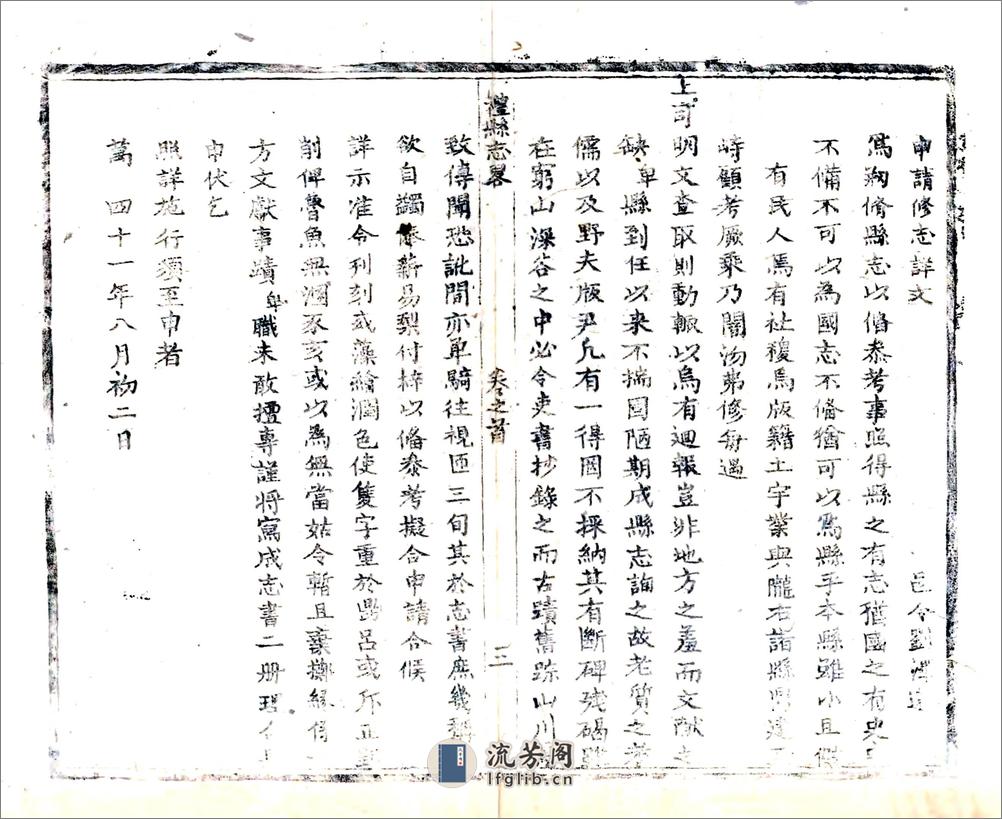 申請修志詳文
邑令劉
爲糊修縣志以俻叅考事照得縣之有志猶國之有史
不備不可以為國志不俻猶可以爲縣乎本縣雖小且
有民人焉有社稷焉版籍土宇業與隴右諸縣
峙顧考厥乘乃闕為弗修每遇
上司明文查取則動輒以烏有廻報豈非地方之羞而文獻之
缺卑縣到任以来不揣固陋期成縣志詢之故老質之
儒以及野夫版尹凢有一得罔不採納其有斷碑残碣
在窮山深谷之中必令吏書抄錄之而古蹟舊跡山川
禮縣志畧
卷之首
三
致傳聞恐訛間亦单騎往視匝三旬其於志書庶幾
欲自蠲俸薪易梨付梓以俻叅考擬合申請合候
詳示准令刋刻或藻繪潤色使隻字重於鼎呂或斥正
削俾魯魚無溷豕亥或以爲無當姑令暫且棄擲緣係
方文獻事蹟卑職未敢擅專謹将寫成志書二册理合
申伏乞
照詳施行須至申者
萬 四十一年八月初二日
流芳阁
lfglib.cn